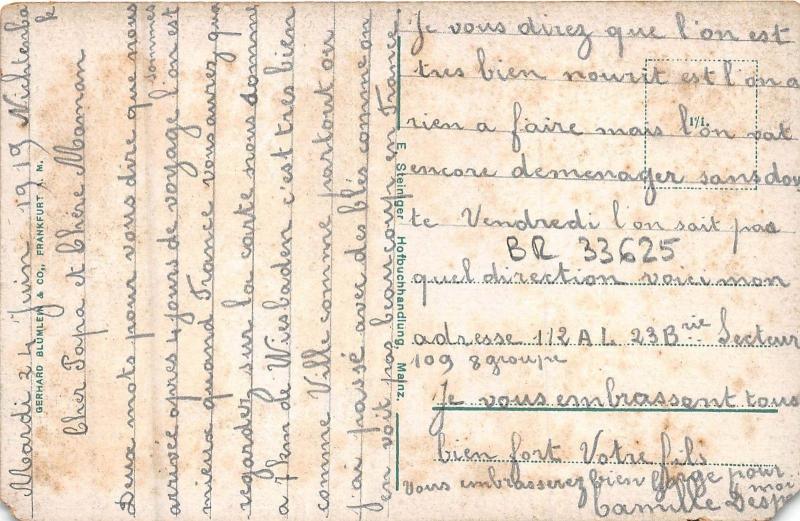 Mardi 24 Juin 1919
Cher Papa et Chère Maman
Deux mots pour vous dire que nous
sommes
arrivée apres 4 jours de voyage l'on est
mieux quand France vous aurez qua
regarder sur la carte nous somme
a 7 km de Wiesbaden c'est tres bien
comme Ville comme partout ou
j'ai passé avec des blés comme on
en voit pas beaucoup en France
Je vous direz que l'on est
tres bien nourit est l'on a
rien a faire mais l'on vat
encore demenager sans dou
te Vendredi l'on sait pas
BR 33625
quel direction voici mon
adresse 112 A L 23 Brie Secteur
109 8 groupe
Je vous embrassent tous
bien fort Votre fils
Vous embrasserez bien pour
moi
Camille Desp
GERHARD BLÜMLEIN & CO., FRANKFURT A. M.
E. Steiniger Hofbuchhandlung, Mainz.
171.